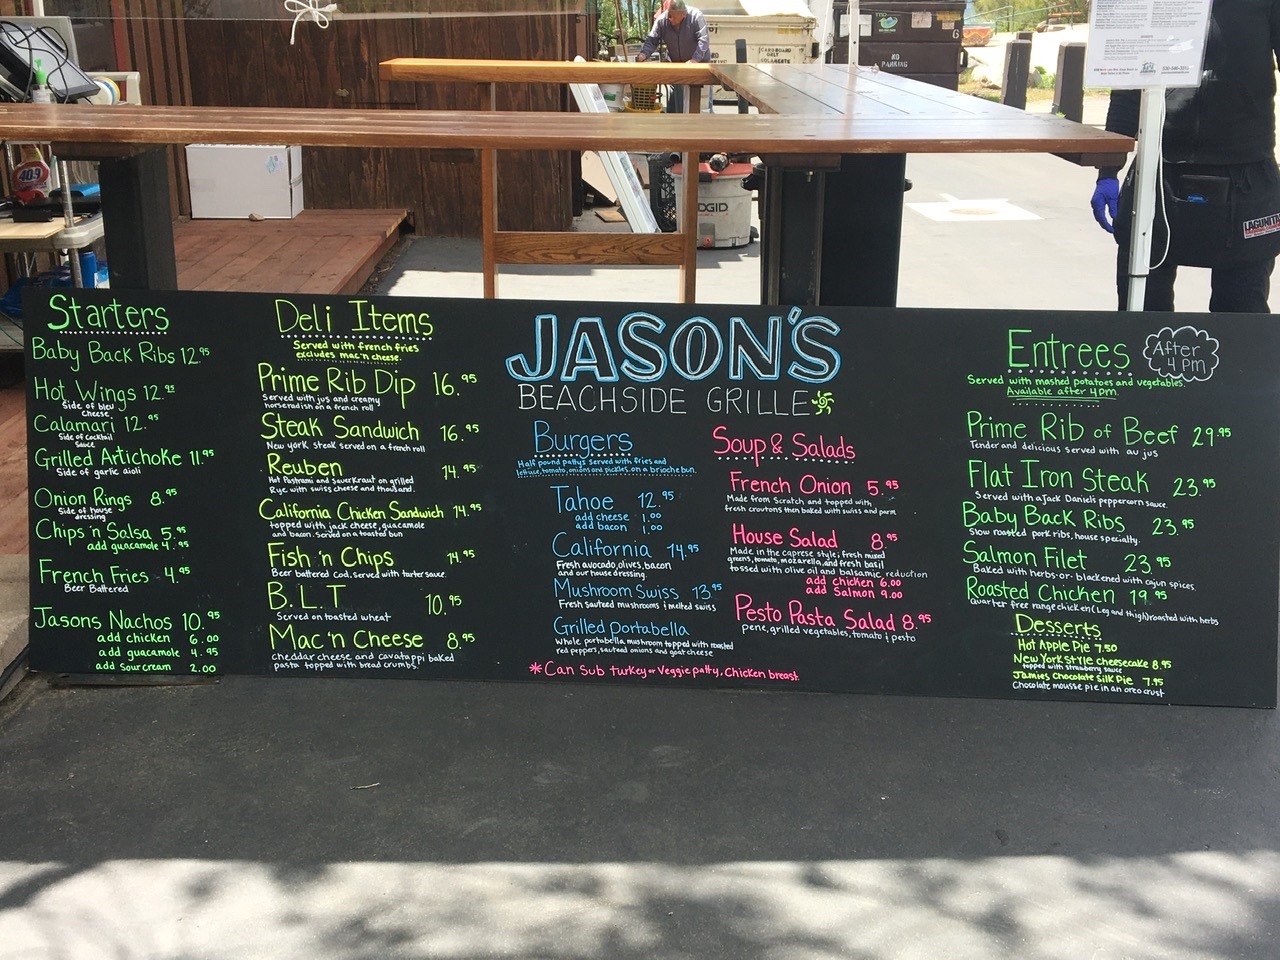 Starters
Baby Back Ribs 12.95
Hot Wings 12.95
Side of bleu
Cheese
Calamari 12.95
Side of Cocktail
Sauce
Grilled Artichoke 11.95
Side of garlic aioli
Onion Rings 8.95
Side of house
dressing
Chips 'n Salsa 5.95
add guacamole 4.95
French Fries 4.95
Beer Battered
Jasons Nachos 10.95
add chicken 6.00
add guacamole 4.95
add sour cream 2.00
Deli Items
Served with french fries
excludes mac 'n cheese.
Prime Rib Dip 16.95
Served with jus and creamy
horseradish on a french roll
Steak Sandwich 16.95
New york steak served on a french roll
Reuben 14.95
Hot Pastrami and Sauerkraut on grilled
Rye with swiss cheese and thousand.
California Chicken Sandwich 14.95
topped with jack cheese, guacamole
and bacon. Served on a toasted bun
Fish 'n Chips 14.95
Beer battered Cod, Served with tarter sauce.
B.L.T 10.95
Served on toasted wheat
Mac 'n Cheese 8.95
cheddar cheese and cavatappi baked
pasta topped with bread crumbs.
JASON'S
BEACHSIDE GRILLE
Burgers
Half pound pattys served with fries and
lettuce, tomato, onions and pickles, on a brioche bun.
Tahoe 12.95
add cheese 1.00
add bacon 1.00
California 14.95
Fresh avocado, olives, bacon
and our house dressing.
Mushroom Swiss 13.95
Fresh sauteed mushrooms & melted swiss
Grilled Portabella
Whole portabella mushroom topped with roasted
red peppers, sauteed onions and goat cheese
*Can Sub turkey or Veggie patty, Chicken breast.
Soup & Salads
French Onion 5.95
Made from Scratch and topped with
fresh croutons then baked with swiss and parm
House Salad 8.95
Made in the caprese style; fresh mixed
greens, tomato, mozarella, and fresh basil
tossed with olive oil and balsamic reduction
add chicken 6.00
add Salmon 9.00
Pesto Pasta Salad 8.95
pene, grilled vegetables, tomato & pesto
Entrees
After
4 pm
Served with mashed potatoes and vegetables.
Available after 4pm.
Prime Rib of Beef 29.95
Tender and delicious served with au jus
Flat Iron Steak 23.95
Served with a Jack Daniels peppercorn sauce.
Baby Back Ribs 23.95
Slow roasted pork ribs, house specialty.
Salmon Filet 23.95
Baked with herbs-or-blackened with cajun spices
Roasted Chicken 19.95
Quarter free range chicken (Leg and thigh) roasted with herbs
Desserts
Hot Apple Pie 7.50
New York Style cheesecake 8.95
topped with strawberry sauce
Jamies Chocolate Silk Pie 7.95
Chocolate mousse pie in an oreo crust
409
RIDGID
CARDBOARD
ONLY
NO
PARKING
6
LAGUNITAS